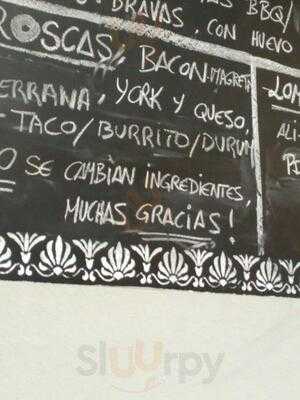 BRAVAS, CON HUEVO
BBQ/
ROSCAS, BACON, MAGRETA
LOM
ERRANA, YORK Y QUESO,
TACO/BURRITO/DURUM
ALI
O SE CAMBIAN INGREDIENTES,
MUCHAS GRACIAS!
Sluurpy